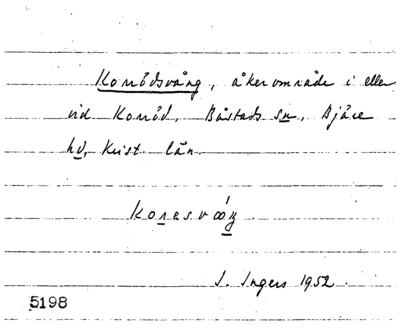 Konrödsvång, åkerområde i eller
vid Konröd, Båstads sn, Bjäre
hd, Krist. län.
Konesvång
I. Ingers 1952.
5198